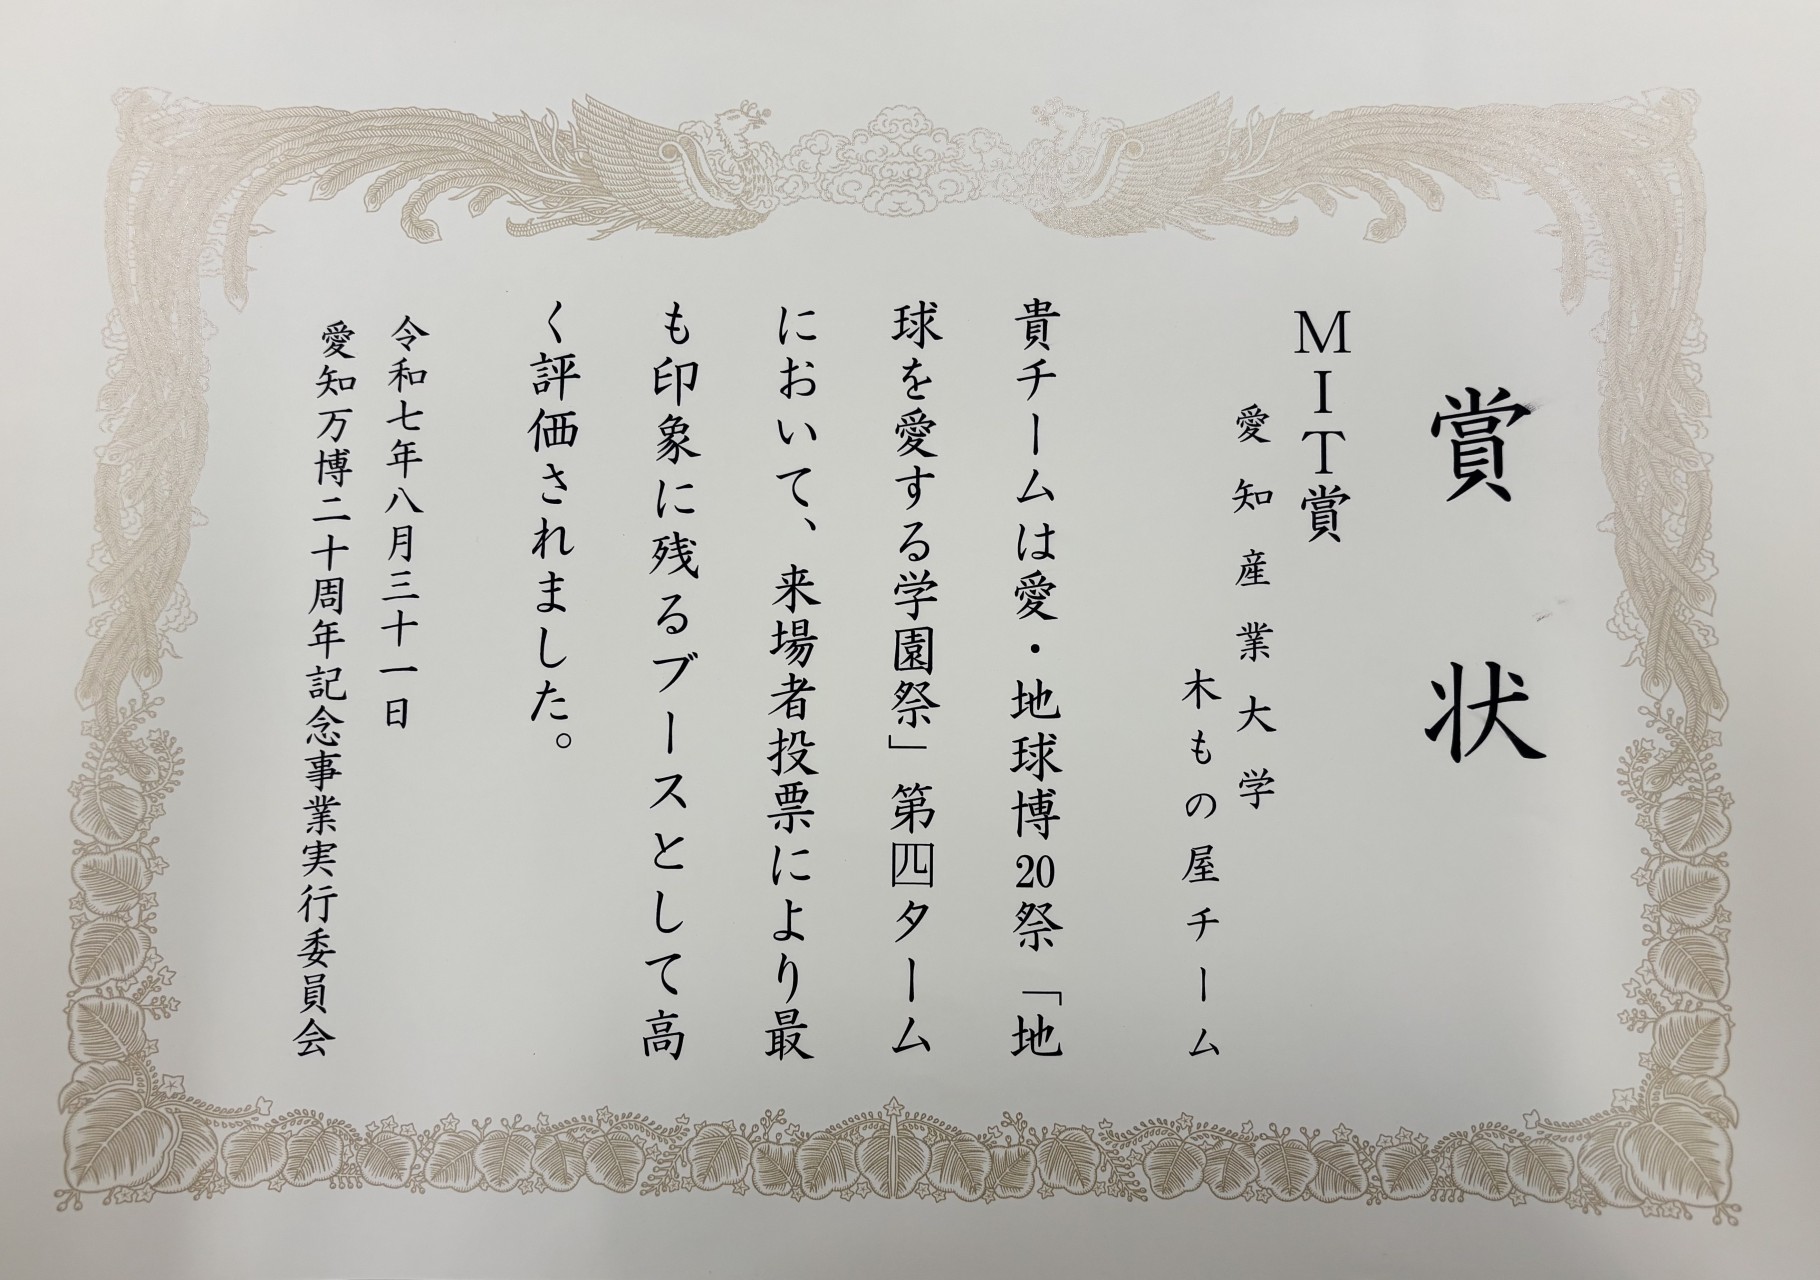 賞状
MIT賞
愛知産業大学
木もの屋チーム
貴チームは愛・地球博20祭「地
球を愛する学園祭」第四ターム
において、来場者投票により最
も印象に残るブースとして高
く評価されました。
令和七年八月三十一日
愛知万博二十周年記念事業実行委員会